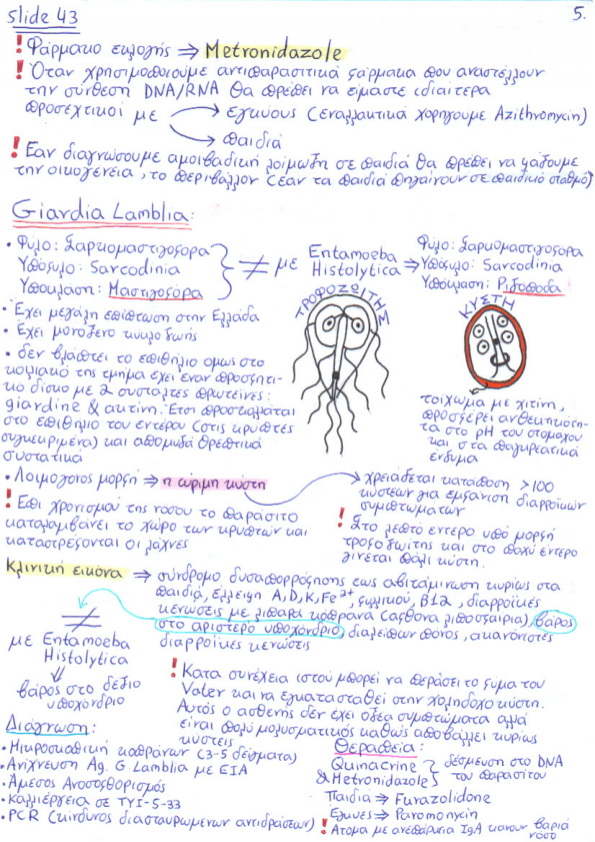 slide 43
5.
! Φάρμακο εκλογής ⇒ Metronidazole
! Όταν χρησιμοποιούμε αντιπαρασιτικά φάρμακα που αναστέλλουν
την σύνθεση DNA/RNA θα πρέπει να είμαστε ιδιαίτερα
προσεχτικοί με → εγκύους (εναλλακτικά χορηγούμε Azithromycin)
→ παιδιά
! Εαν διαγνώσουμε αμοιβαδική λοίμωξη σε παιδιά θα πρέπει να ψάξουμε
την οικογένεια, το περιβάλλον (εάν τα παιδιά πηγαίνουν σε παιδικό σταθμό)
Giardia Lamblia:
• Φύλο: Σαρκομαστιγοφόρα
Υπόφυλο: Sarcodinia
Υποκλαση: Μαστιγοφόρα
≠ με Entamoeba
Histolytica ⇒
Φύλο: Σαρκομαστιγοφόρα
Υπόφυλο: Sarcodinia
Υποκλαση: Ριζοποδα
• Έχει μεγάλη επίπτωση στην Ελλάδα
• Έχει μονόξενο κυκλο ζωής
• δεν βλάπτει το επιθήλιο ομως στο
κοιλιακό της τμημα έχει έναν προσφητι-
κο δίσκο με 2 συσταλτες πρωτεινες:
giardine & actim. Έτσι προσκολλαται
στο επιθηλιο του εντέρου (στις κρυπτές
συγκεκριμένα) και απομυζά θρεπτικά
συστατικά
ΤΡΟΦΟΖΩΙΤΗΣ
ΚΥΣΤΗ
τοίχωμα με χιτίνη,
προσφέρει ανθεκτικότη-
τα στο pH του στομάχου
και στα παγκρεατικά
ένζυμα
• Λοιμογονος μορφή ⇒ η ώριμη κύστη
→ χρειάζεται καταποση >100
κύστεων για εμφανιση διαρροικων
συμπτωμάτων
! Επι χρονισμού της νοσου το παράσιτο
καταλαμβανει το χώρο των κρυπτων και
καταστρέφονται οι λάχνες
! Στο λεπτό εντερο υπό μορφή
τροφοζωίτης και στο παχύ έντερο
γίνεται πάλι κύστη.
Κλινική εικόνα ⇒ σύνδρομο δυσαπορρόφησης εως αβιτάμινωση κυρίως στα
παιδιά, έλλειψη A,D,K,Fe²⁺, φυλλικού, B12, διαρροϊκές
κενώσεις με λιπαρά κόπρανα (αφθονα λιποσφαιρια), βάρος
στο αριστερό υποχόνδριο, διαλείπων πονος, ακανόνιστες
διαρροϊκες κενώσεις
≠
με Entamoeba
Histolytica
⇓
βάρος στο δεξιο
υποχόνδριο
! Κατα συνέχεια ιστού μπορεί να περάσει το φυμα του
Vater και να εγκατασταθεί στην χοληδοχο κύστη.
Αυτός ο ασθενής δεν έχει οξέα συμπτώματα αλλά
είναι πολύ μολυσματικός καθώς αποβάλλει κυρίως
κύστεις
Διάγνωση:
• Μικροσκοπική κοπράνων (3-5 δείγματα)
• Ανίχνευση Ag. G. Lamblia με EIA
• Άμεσος Ανοσοφθορισμός
• Καλλιέργεια σε TYI-S-33
• PCR (κίνδυνος διασταυρωμενων αντιδράσεων)
Θεραπεία:
Quinacrine
& Metronidazole } δέσμευση στο DNA
του παρασίτου
Παιδιά ⇒ Furazolidone
Έγκυες ⇒ Paromonycin
! Άτομα με ανεπάρκεια IgA κανουν βαριά
νοσο